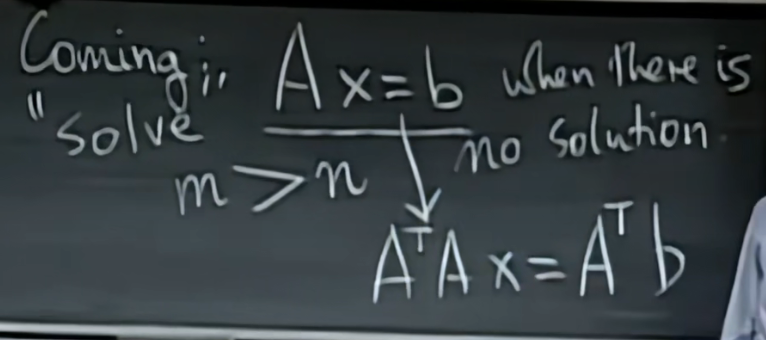 Coming:
"solve" Ax=b when there is
no solution.
m > n
AᵀA x = Aᵀb